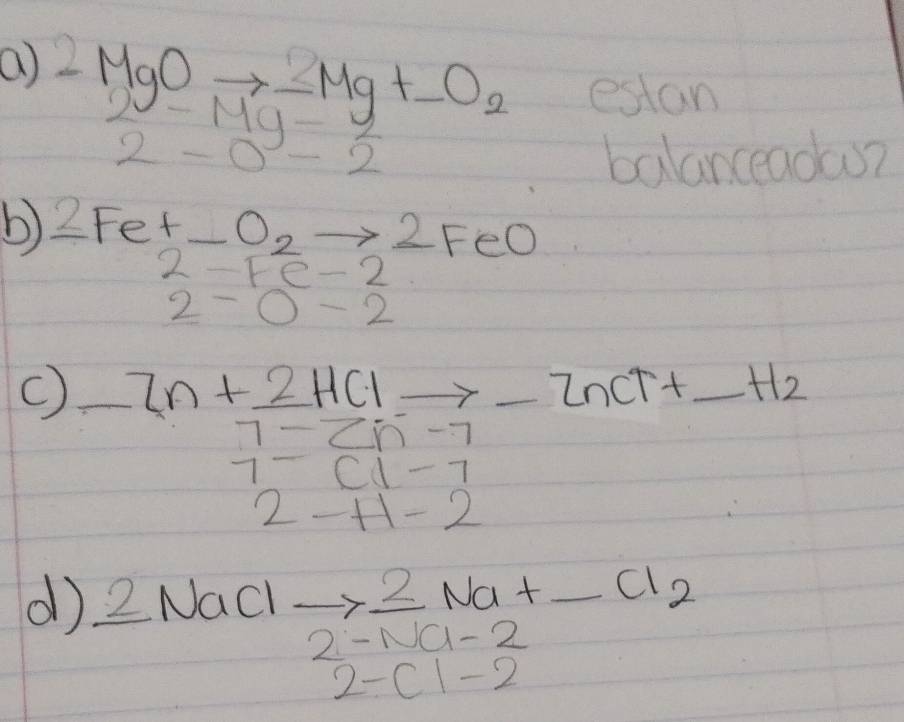 a) 2 MgO → 2 Mg + _ O₂ estan
2 - Mg - 2
2 - O - 2 balanceadas?
b) 2 Fe + _ O₂ → 2 FeO
2 - Fe - 2
2 - O - 2
c) _ Zn + 2 HCl → _ ZnCl + _ H2
1 - Zn - 1
1 - Cl - 1
2 - H - 2
d) 2 NaCl → 2 Na + _ Cl₂
2 - Na - 2
2 - Cl - 2